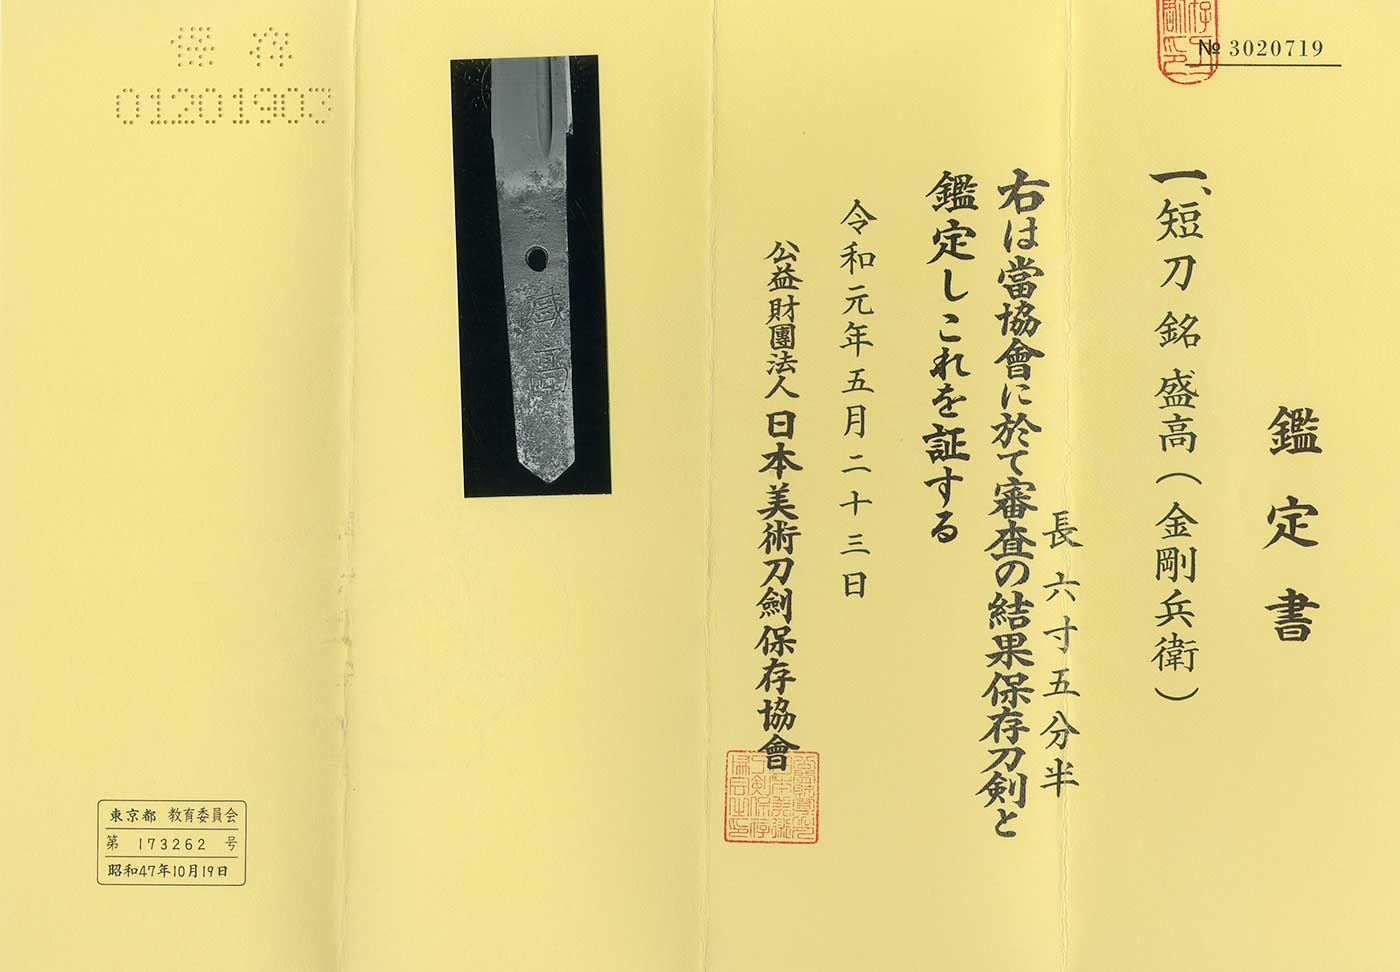 № 3020719
鑑定書
一、短刀 銘 盛高(金剛兵衛)
長六寸五分半
右は當協會に於て審査の結果保存刀剣と
鑑定しこれを証する
令和元年五月二十三日
公益財團法人 日本美術刀劍保存協會
盛高
保存
01201903
東京都 教育委員会
第 173262 号
昭和47年10月19日